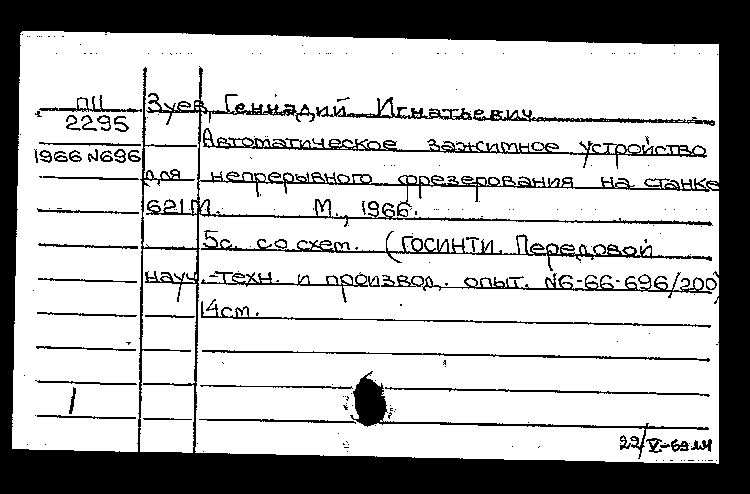 П11 Зуев, Геннадий Игнатьевич
2295
Автоматическое зажимное устройство
1966 N696
для непрерывного фрезерования на станке
621М. М., 1966.
5с. со схем. (ГОСИНТИ. Передовой
науч.-техн. и производ. опыт. N6-66-696/200)
14см.
1